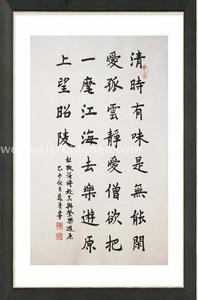 清時有味是無能閒
愛孤雲靜愛僧欲把
一麾江海去樂遊原
上望昭陵
杜牧將赴吳興登樂遊原